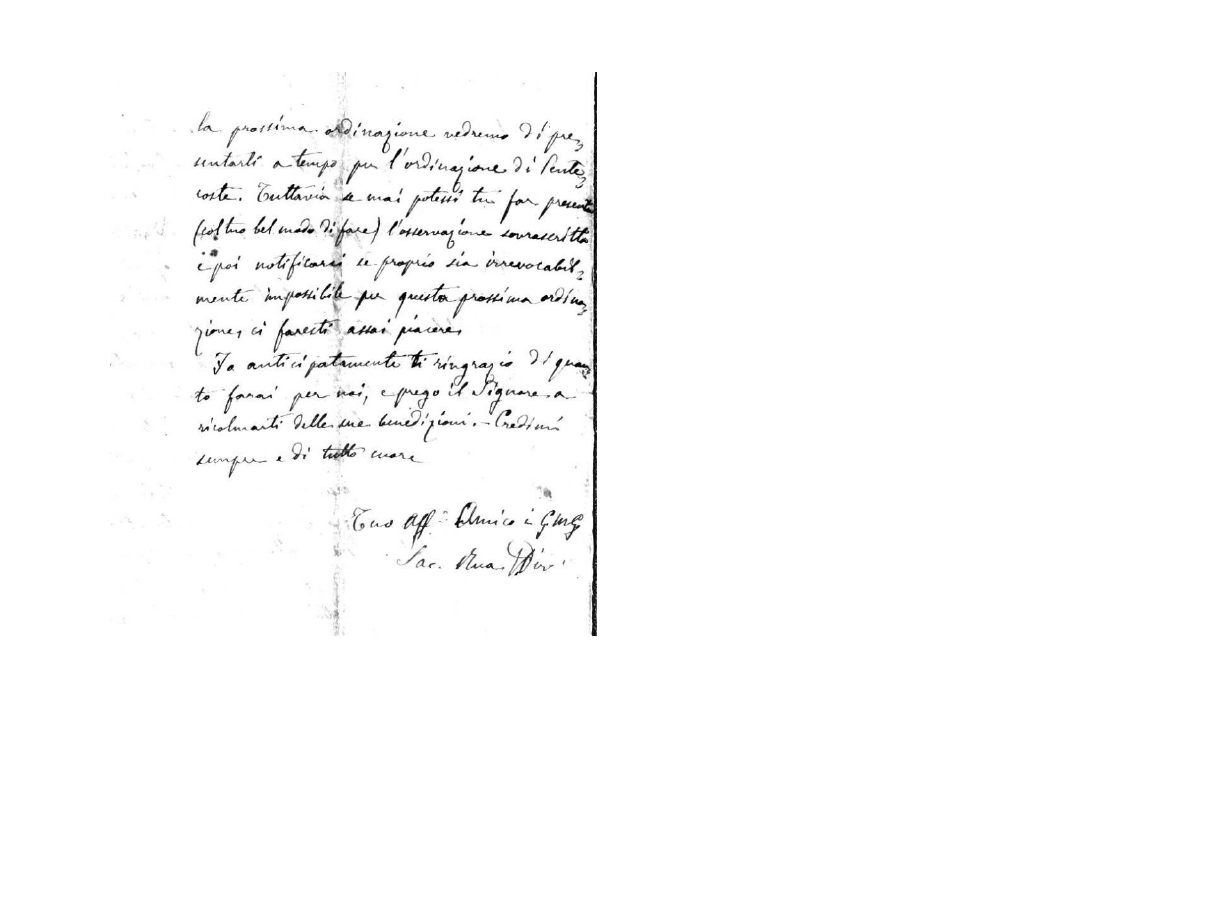 la prossima ordinazione vedremo di pre=
sentarli a tempo per l'ordinazione di Pente=
coste. Tuttavia se mai potessi tu far presente
(col tuo bel modo di fare) l'osservazione sovrascritta
e poi notificarci se proprio sia irrevocabil=
mente impossibile per questa prossima ordina=
zione, ci faresti assai piacere.
Ja anticipatamente ti ringrazio di quan=
to farai per noi, e prego il Signore a
ricolmarti delle sue benedizioni. - Credimi
sempre e di tutto cuore
Tuo Aff. Amico in G. M. G.
Sac. Rua